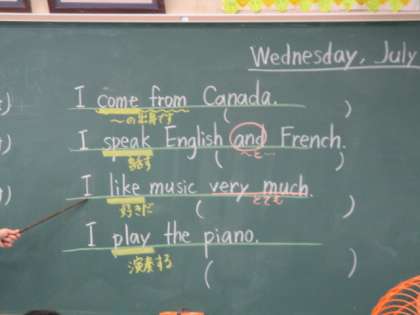 Wednesday, July
I come from Canada.
～の出身です
( )
I speak English and French.
話す
～と…
( )
I like music very much.
好きだ
とても
( )
I play the piano.
演奏する
( )